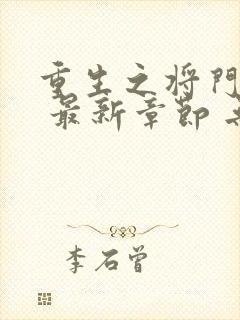 重生之将门
最新章节
李石曾